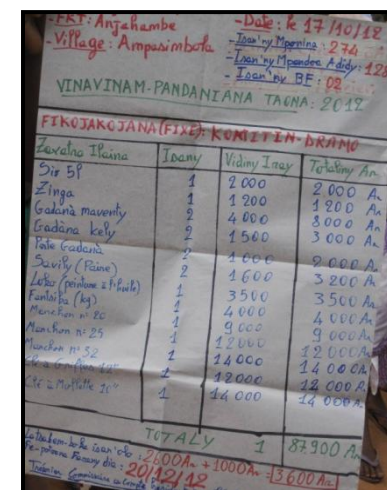 - FKT: Anjahambe
- Village: Ampasimbola
- Date: le 17/10/12
- Isan'ny Mponina: 274
- Isan'ny Mpandoa Adidy: 128
- Isan'ny BF: 02
VINAVINAM-PANDANIANA TAONA: 2012
FIKOJAKOJANA (FIXE): KOMITIN-DRANO
Zavatra Ilaina Isany Vidiny Iray Totaliny Ar
Sis 5l 1 2 000 2 000 Ar
Zinga 1 1 200 1 200 Ar
Gadana maventy 2 4 000 8 000 Ar
Gadana kely 2 1 500 3 000 Ar
Gadana 2 1 000 2 000 Ar
Savily (Paire) 2 1 600 3 200 Ar
Loko 1 3 500 3 500 Ar
(kg) 1 4 000 4 000 Ar
Manchon n° 20 1 9 000 9 000 Ar
Manchon n° 25 1 12 000 12 000 Ar
Manchon n° 32 1 14 000 14 000 Ar
Clé à Griffon 1 12 000 12 000 Ar
Clé à Molette 1 14 000 14 000 Ar
TOTALY 1 87.900 Ar
: 2600 Ar + 1000 Ar = 3600 Ar
dia : 20/12/12